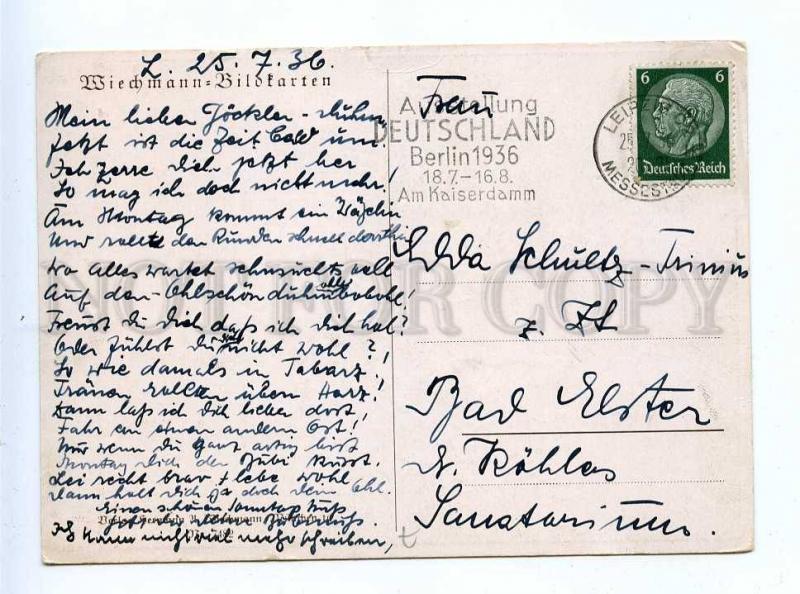 L. 25.7.36.
Wiechmann-Bildkarten
Mein lieber
Jetzt ist die Zeit bald um
Ich zerre Dich jetzt her
So mag ich doch nicht mehr!
Am Montag kommt ein
Und rollt den schnell dorthin
Wo alles wartet sehnsuchtsvoll
Auf den
Freust du Dich daß ich dich hol?
Oder fühlst du nicht wohl?!
So wie damals in Tabarz!
Tränen rollten übern Harz!
Dann laß ich Dich lieber dort,
Fahr an einen andern Ort!
Nur wenn du ganz artig bist
Montag Dich der Bubi küsst.
Sei recht brav + lebe wohl
dann holt Dich ja doch dein Ohl.
Einen schönen Sonntag Kuß
Verlag Hermann A. Wiechmann, München
Kann nicht viel mehr schreiben,
Frau
Ausstellung
DEUTSCHLAND
Berlin 1936
18.7.-16.8.
Am Kaiserdamm
LEIPZIG
25
MESSESTADT
6 6
Deutsches Reich
Edda Schultz-Trinius
z. Zt
Bad Elster
Dr. Köhlers
Sanatorium.
NOT FOR COPY